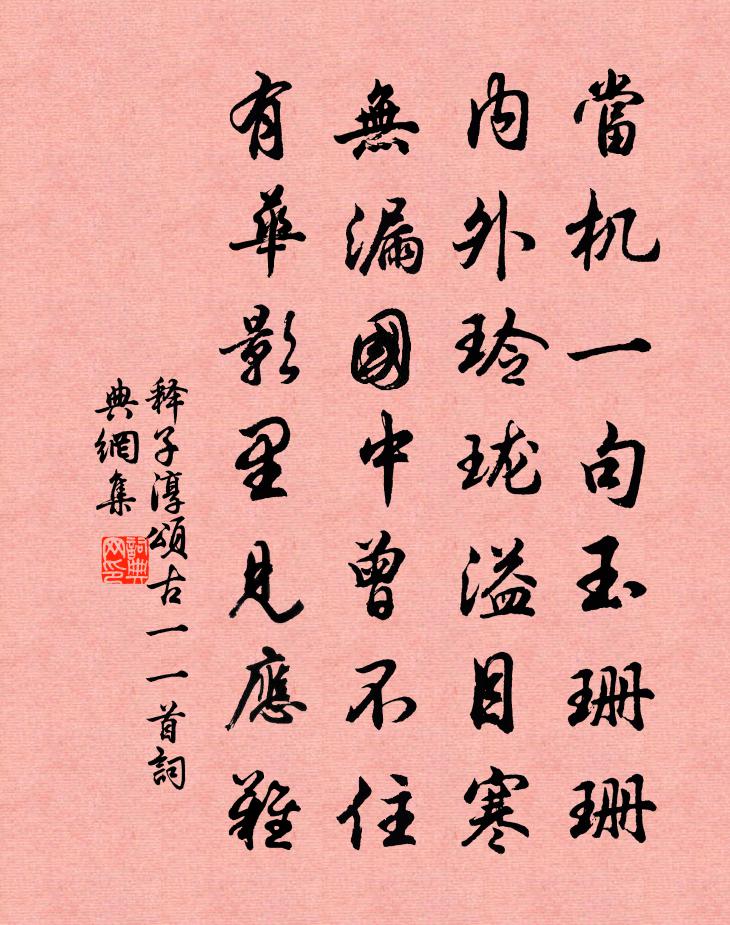 當机一句玉珊珊
内外玲珑溢目寒
無漏國中曾不住
有華影里見應難
释子淳頌古一一首詞
典網集
詞典
网印